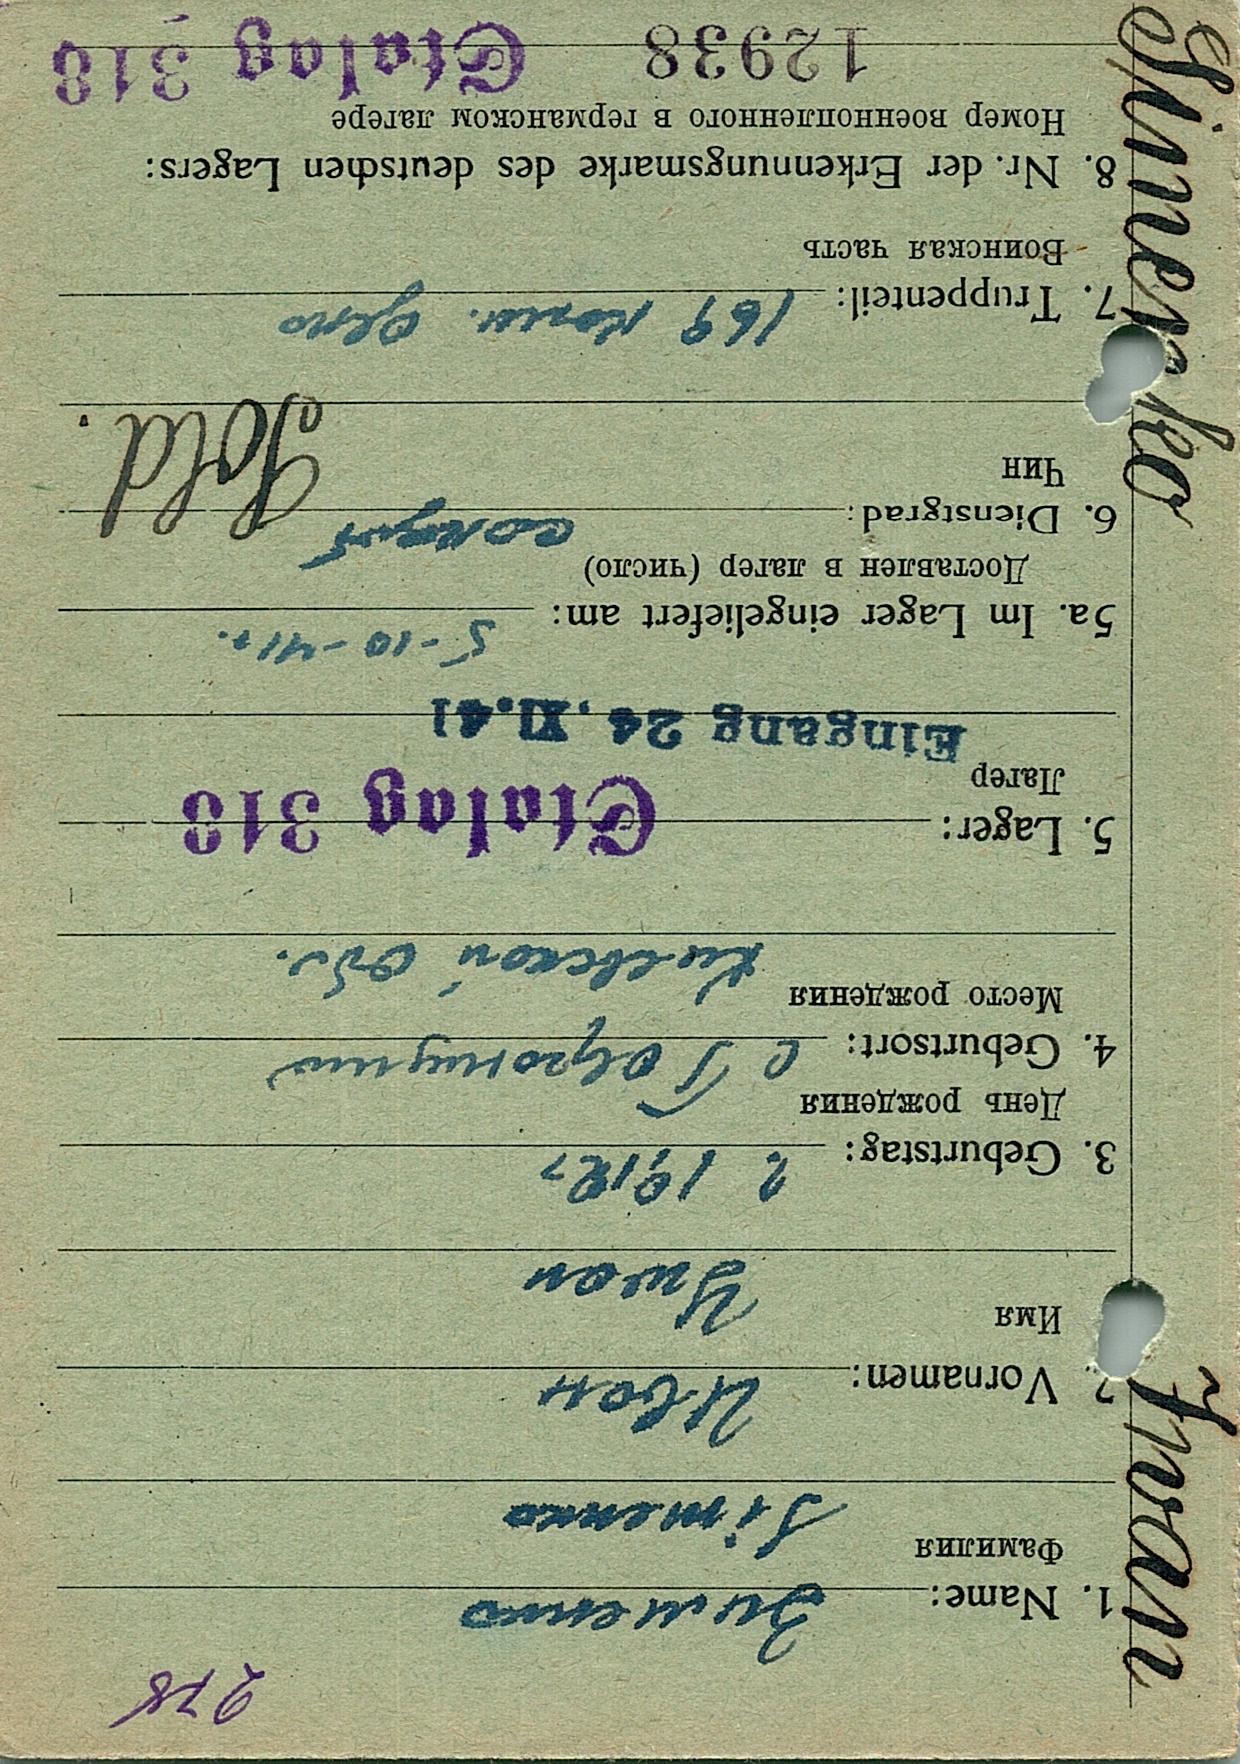 278
1. Name: Зименко
Фамилия
Simenko
2. Vornamen: Иван
Имя
Ywan
3. Geburtstag: 1912
День рождения
4. Geburtsort: с
Место рождения
Киевской Обл.
5. Lager: Stalag 318
Лагер
Eingang 24. XI. 41
5a. Im Lager eingeliefert am: 5-10-41г.
Доставлен в лагер (число)
6. Dienstgrad: солдат
Чин
Sold.
7. Truppenteil: 169
Воинская часть
8. Nr. der Erkennungsmarke des deutschen Lagers:
Номер военнопленного в германском лагере
12938 Stalag 318
Simenko Iwan